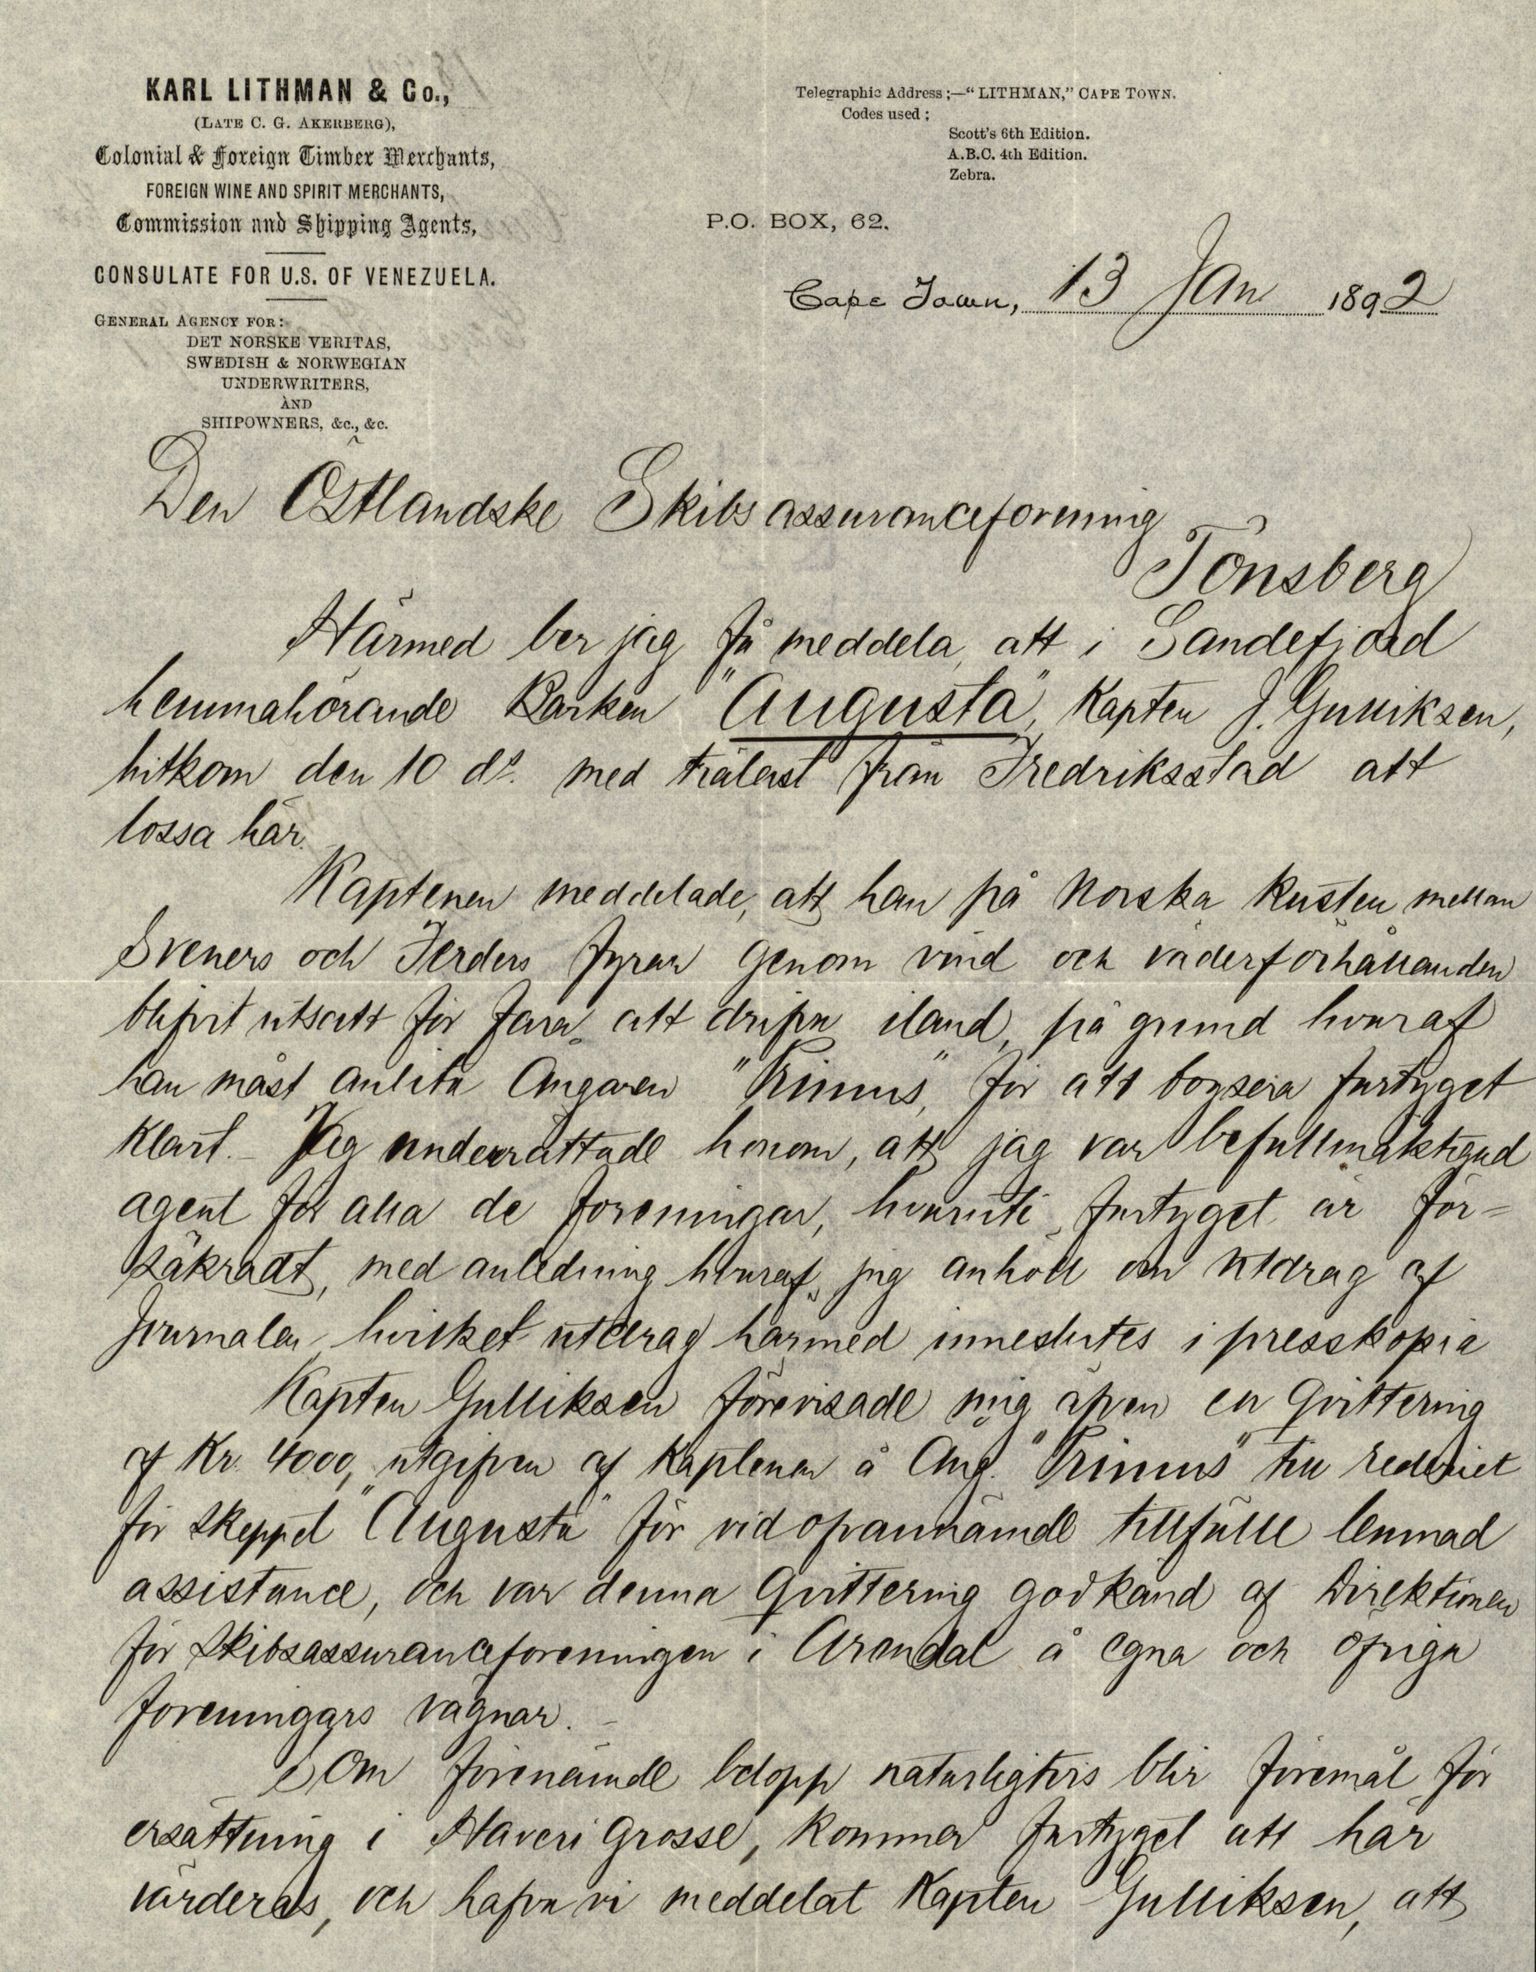 KARL LITHMAN & Co.,
(LATE C. G. AKERBERG),
Colonial & Foreign Timber Merchants,
FOREIGN WINE AND SPIRIT MERCHANTS,
Commission and Shipping Agents,
CONSULATE FOR U.S. OF VENEZUELA.
GENERAL AGENCY FOR:
DET NORSKE VERITAS,
SWEDISH & NORWEGIAN
UNDERWRITERS,
AND
SHIPOWNERS, &c., &c.
Telegraphic Address;—"LITHMAN," CAPE TOWN.
Codes used;
Scott's 6th Edition.
A.B.C. 4th Edition.
Zebra.
P.O. BOX, 62.
Cape Town, 13 Jan 1892
Den Östlandske Skibsassuranceforening
Tönsberg
Härmed ber jag få meddela, att i Sandefjord
hemmahörande Barken "Augusta", Kapten J. Gulliksen,
hitkom den 10 ds. med trälast från Fredriksstad att
lossa här.
Kaptenen meddelade, att han på Norska Kusten mellan
Sveners och Ferders fyrar genom vind och väderförhållanden
blifvit utsatt för fara att drifva iland, på grund hvaraf
han måst anlita Ångaren "Primus", för att bogsera fartyget
klart. - Jag underrättade honom, att jag var befullmäktigad
agent för alla de foreningar, hvaruti fartyget är för=
säkradt, med anledning hvaraf jag anhöll om utdrag af
Journalen, hvilket utdrag härmed inneslutes i presskopia
Kapten Gulliksen förevisade mig äfven en qvittering
af Kr. 4000, utgifven af Kaptenen å Ång. "Primus" till rederiet
för skeppet "Augusta" för vid ofvannämde tillfälle lemnad
assistance, och var denna qvittering godkänd af Direktionen
för Skibsassuranceforeningen i Arendal å egna och öfriga
foreningars vägnar. -
Som förenämde belopp naturligtvis blir föremål för
ersättning i Haveri Grosse, kommer fartyget att här
värderas, och hafva vi meddelat Kapten Gulliksen, att